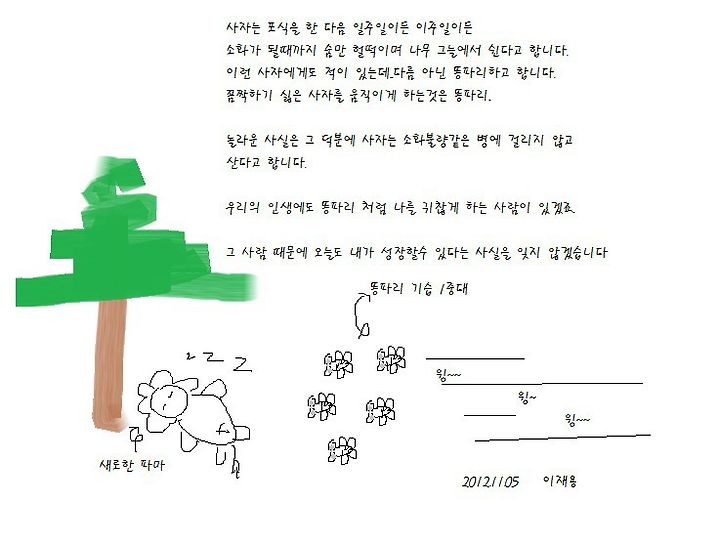 사자는 포식을 한 다음 일주일이든 이주일이든
소화가 될때까지 숨만 헐떡이며 나무 그늘에서 쉰다고 합니다.
이런 사자에게도 적이 있는데..다름 아닌 똥파리하고 합니다.
꼼짝하기 싫은 사자를 움직이게 하는것은 똥파리..
놀라운 사실은 그 덕분에 사자는 소화불량같은 병에 걸리지 않고
산다고 합니다.
우리의 인생에도 똥파리 처럼 나를 귀찮게 하는 사람이 있겠죠.
그 사람 때문에 오늘도 내가 성장할수 있다는 사실을 잊지 않겠습니다
똥파리 기습 1중대
z z z
윙~~
윙~
윙~~
새로한 파마
20121105 이재용